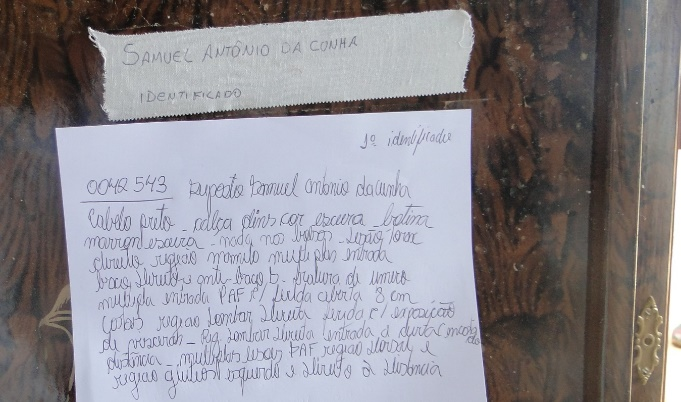 SAMUEL ANTÔNIO DA CUNHA
IDENTIFICADO
1º identificado
0042543 Samuel Antonio da cunha
Cabelo preto - calça jins cor escura - botina
marron escura - nada nos bolsos - Lesão torax
direito região mamilo multiplas entrada
braço direito e anti-braço D. fratura de umero
multipla entrada PAF c/ ferida aberta 8 cm
Costas região Lombar direita ferida c/ exposição
de - Reg. Lombar direita entrada a curta media
distância - multiplas lesoes PAF região dorsal e
região gluteos esquerdo e direito a distância